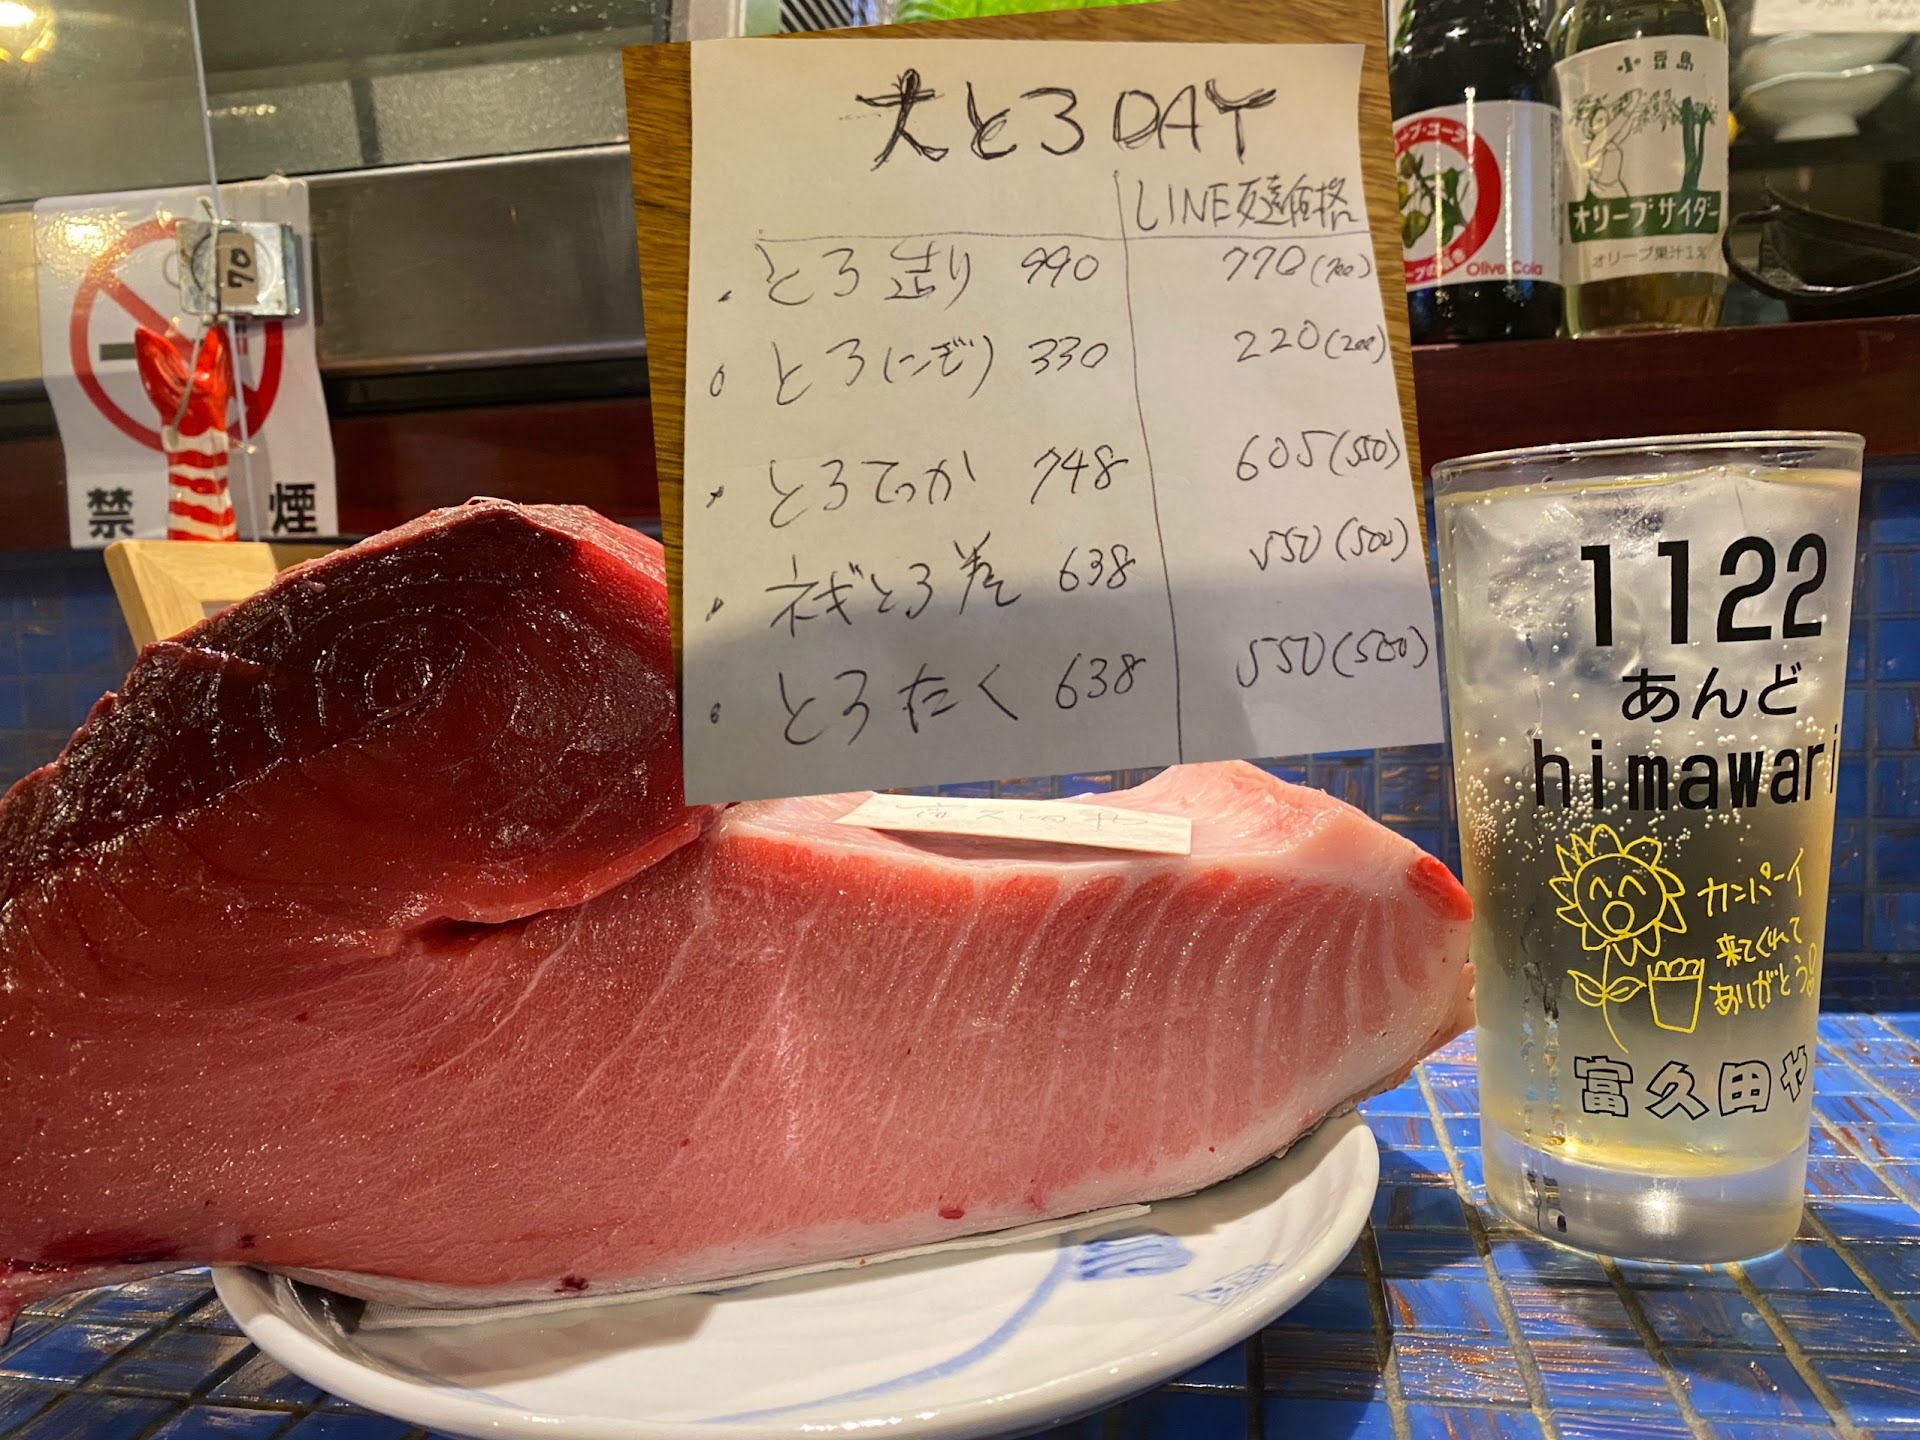 大とろDAY
LINE友達価格
・とろ造り 990 770(700)
・とろにぎり 330 220(200)
・とろてっか 748 605(550)
・ネギとろ巻 638 550(500)
・とろたく 638 550(500)
70
禁煙
富久田や
Olive Cola
小豆島
オリーブサイダー
オリーブ果汁1%
1122
あんど
himawari
カンパーイ
来てくれて
ありがとう!
富久田や